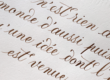 n'est rien a
mence d'aussi puis
'une idée dont l
est venue